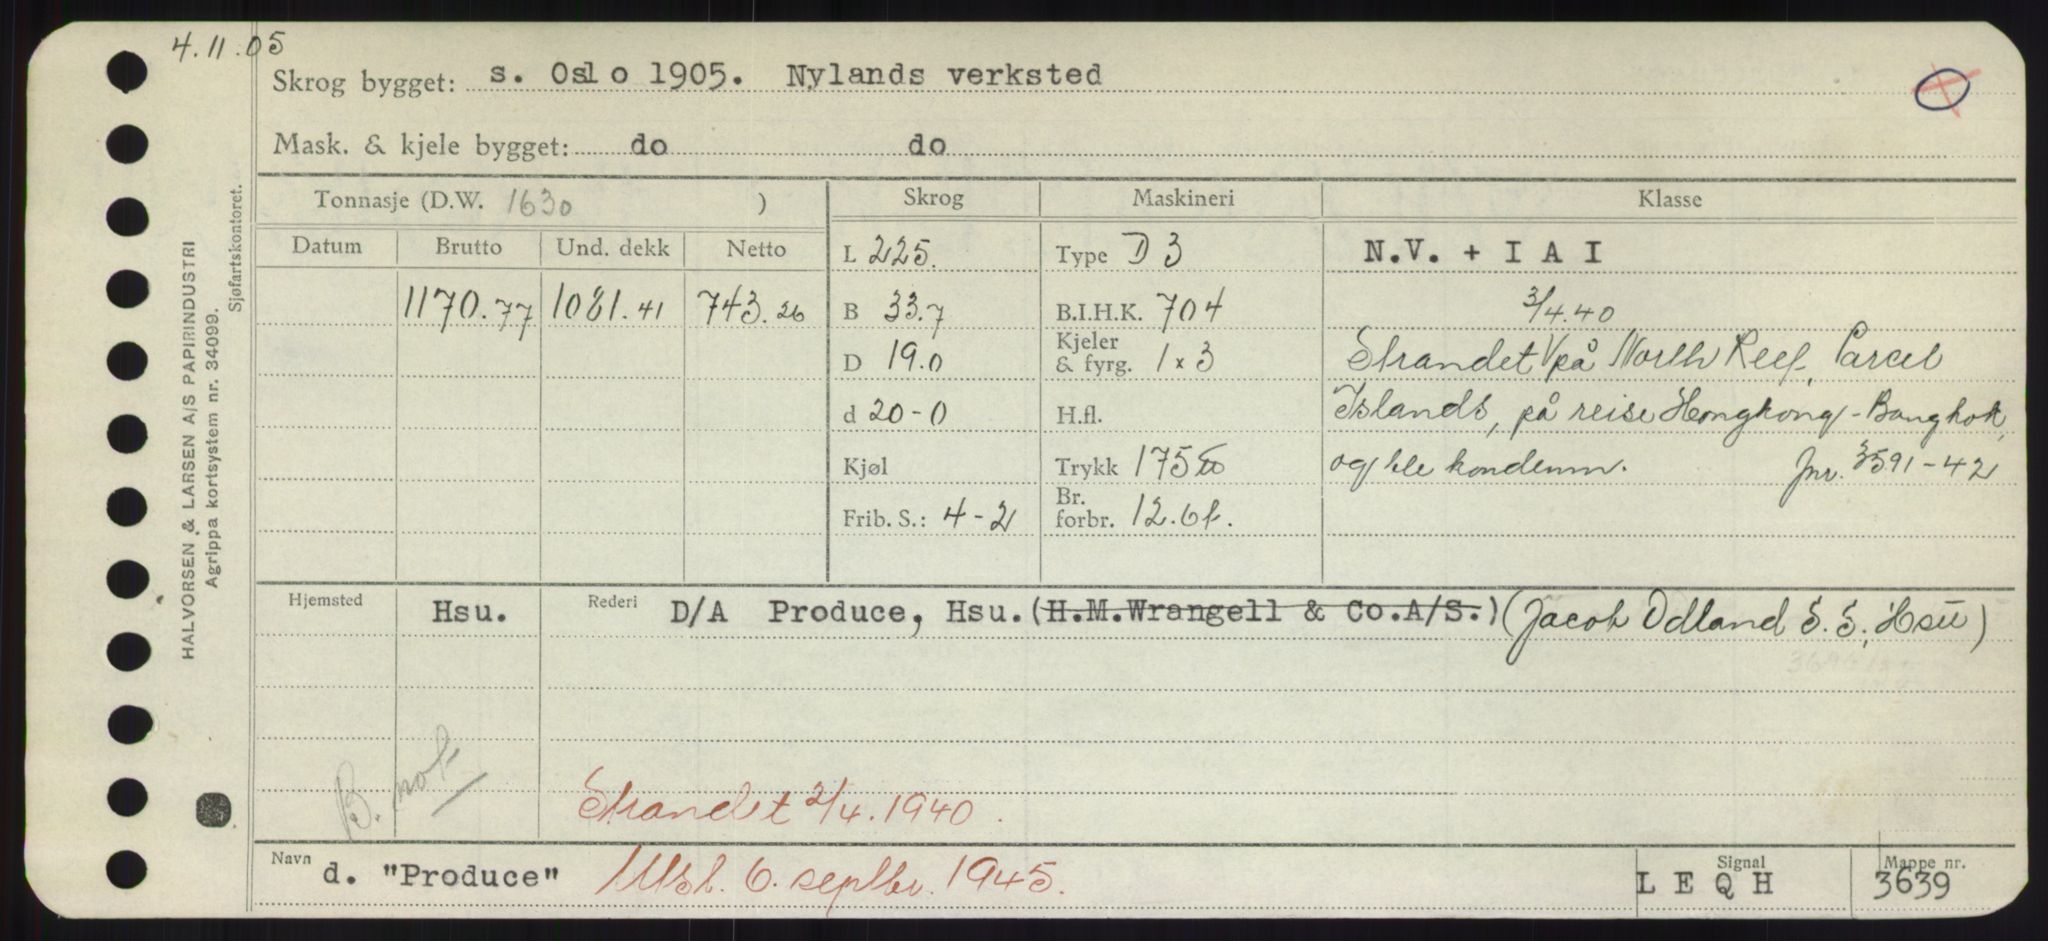 4.11.05
Skrog bygget: s. Oslo 1905. Nylands verksted
Mask. & kjele bygget: do do
Tonnasje (D.W. 1630 ) Skrog Maskineri Klasse
Datum Brutto Und. dekk Netto L 225. Type D 3 N.V. + I A I
1170.77 1081.41 743.26 B 33.7 B.I.H.K. 704 3/4.40
D 19.0 Kjeler & fyrg. 1 x 3 Strandet på North Reef, Parcel
d 20-0 H.fl. Islands, på reise Hongkong - Bangkok,
Kjøl Trykk 175 og ble kondemn. Jnr. 3591-42
Frib. S.: 4-2 Br. forbr. 12.6t.
Hjemsted Hsu. Rederi D/A Produce, Hsu. (H.M.Wrangell & Co.A/S.) (Jacob Odland S. S., Hsu)
B. not
Strandet 2/4. 1940.
Navn d. "Produce" Utsl. 6. septbr. 1945. Signal L E Q H Mappe nr. 3639
HALVORSEN & LARSEN A/S PAPIRINDUSTRI
Agrippa kortsystem nr. 34099.
Sjøfartskontoret.